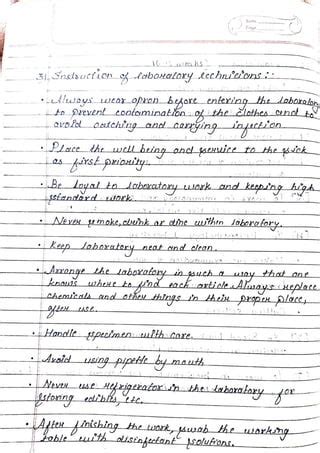 3) Instruction of laboratory technicians :-
• Always wear apron before entering the laboratory
to prevent contamination of the clothes and to
avoid catching and carrying infection.
• Place the well being and service to the sick
as first priority.
• Be loyal to laboratory work and keeping high
standard work.
• Never smoke, drink or dine within laboratory.
• Keep laboratory neat and clean.
• Arrange the laboratory in such a way that one
knows where to find each article. Always replace
chemicals and other things in their proper place,
after use.
• Handle specimen with care.
• Avoid using pipette by mouth
• Never use refrigerator in the laboratory for
storing edibles, etc.
• After finishing the work, swab the working
table with disinfectant solutions.